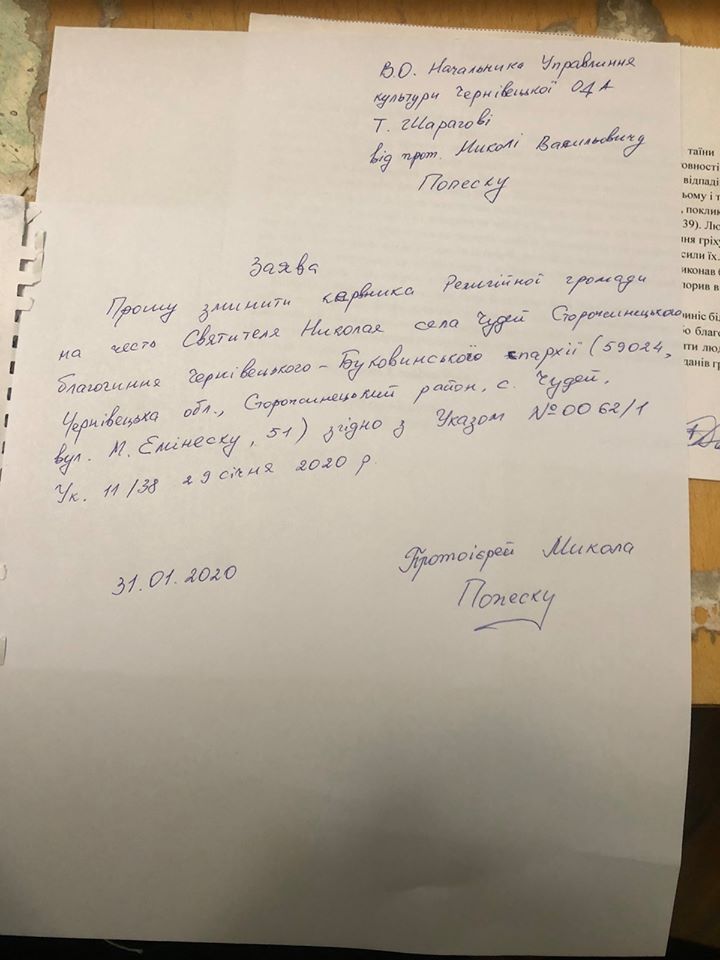 В.О. Начальника Управління
культури Чернівецької ОДА
Т. Шарагові
від прот. Миколі Васильовича
Попеску
Заява
Прошу змінити керівника Релігійної громади
на честь Святителя Николая села Чудей Сторожинецького
благочиння Чернівецького-Буковинської єпархії (59024,
Чернівецька обл., Сторожинецький район, с. Чудей,
вул. М. Емінеску, 51) згідно з Указом №0062/1
Ук. 11/38 29 січня 2020 р.
31.01.2020
Протоієрей Микола
Попеску
таїни
овності
відпаді
ьому і т
покли
39). Лю
ня гріху
сили їх.
иконав б
порив в
иніс біл
о благо
ити люд
данів гр